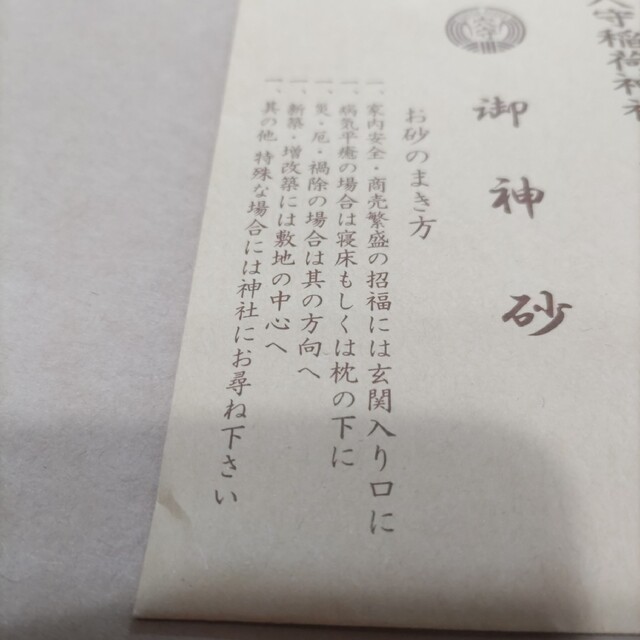 守稲荷神社
御神砂
お砂のまき方
一、家内安全・商売繁盛の招福には玄関入り口に
一、病気平癒の場合は寝床もしくは枕の下に
一、災・厄・禍除の場合は其の方向へ
一、新築・増改築には敷地の中心へ
一、其の他 特殊な場合には神社にお尋ね下さい